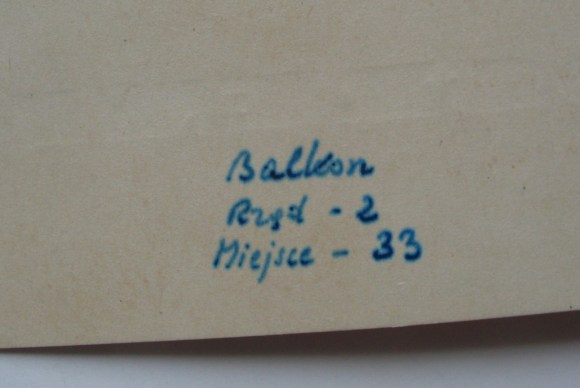 Balkon
Rząd - 2
Miejsce - 33